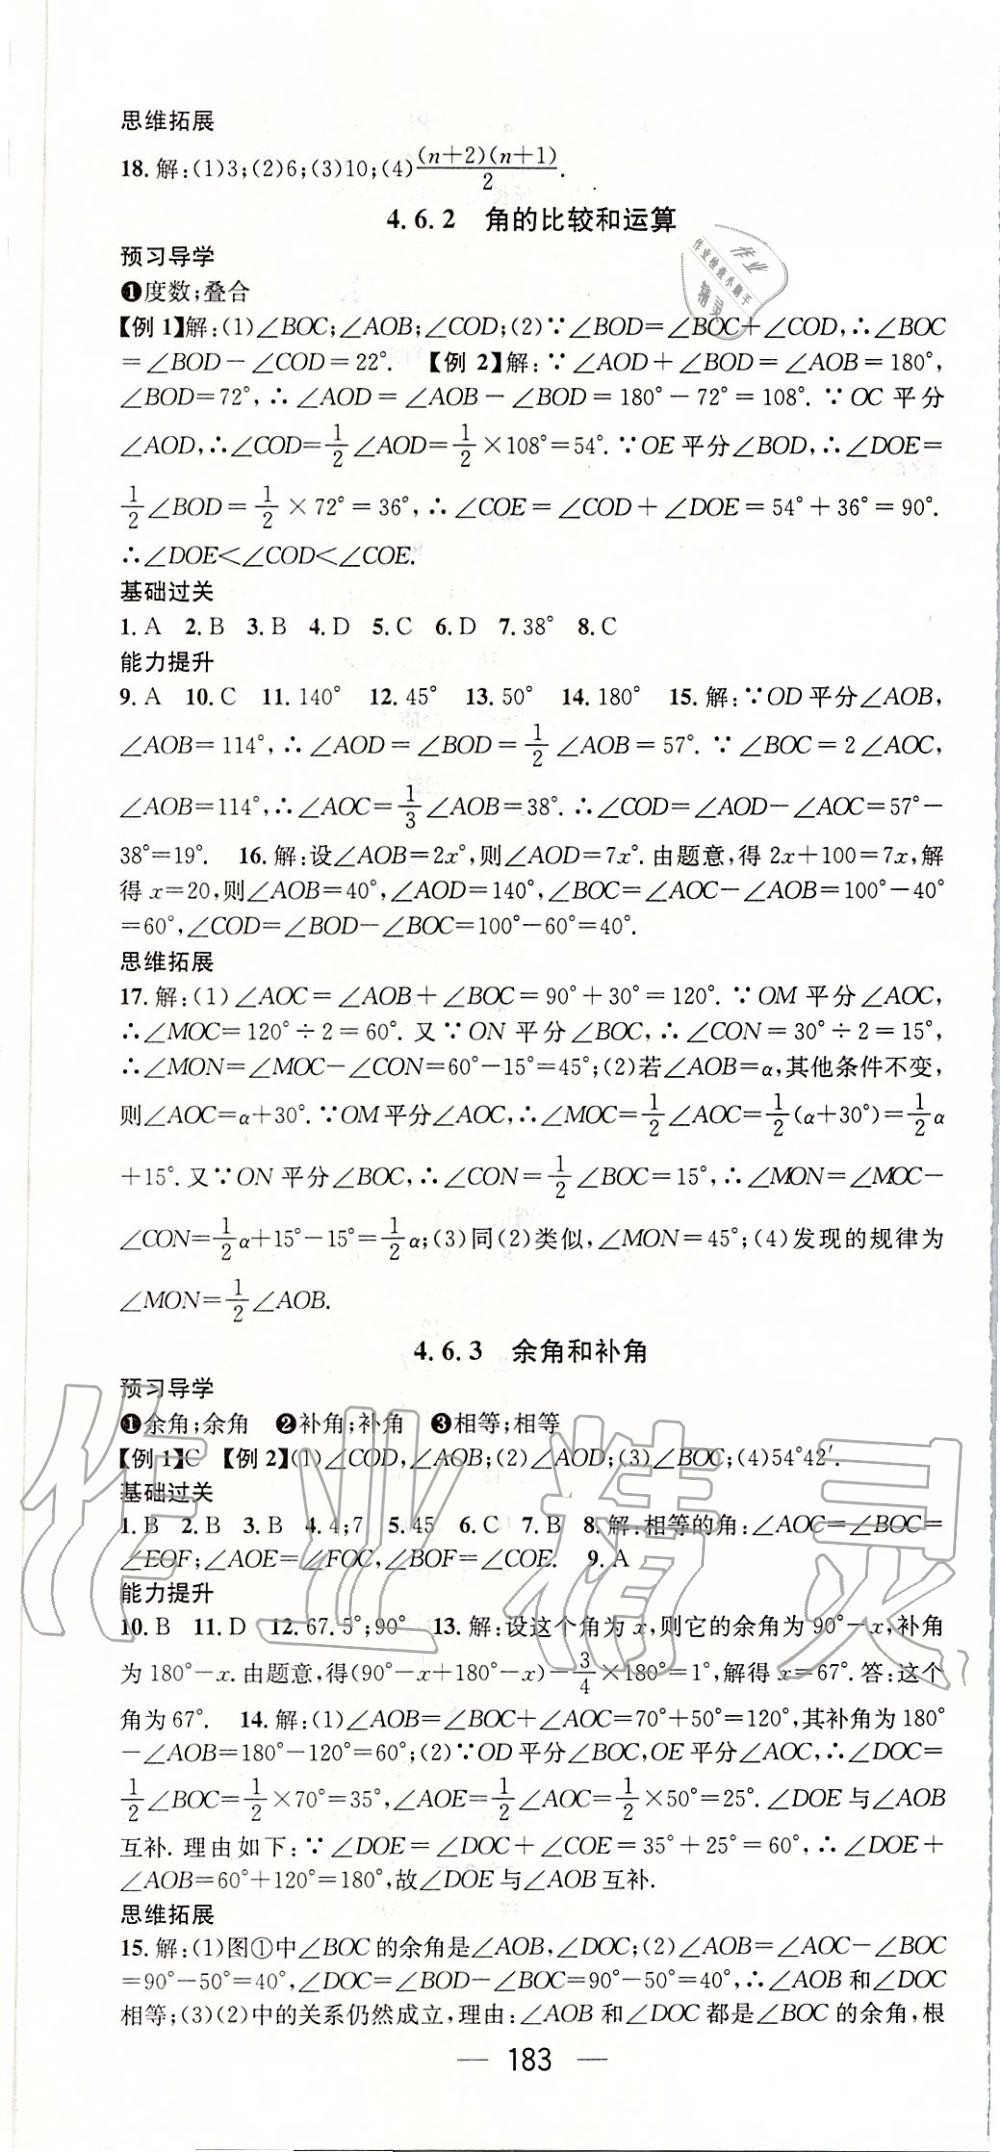 思维拓展
18.解:(1)3;(2)6;(3)10;(4)(n+2)(n+1)/2.
4.6.2 角的比较和运算
预习导学
❶度数;叠合
【例1】解:(1)∠BOC;∠AOB;∠COD;(2)∵∠BOD=∠BOC+∠COD,∴∠BOC
=∠BOD-∠COD=22°. 【例2】解:∵∠AOD+∠BOD=∠AOB=180°,
∠BOD=72°,∴∠AOD=∠AOB-∠BOD=180°-72°=108°.∵OC平分
∠AOD,∴∠COD=1/2∠AOD=1/2×108°=54°.∵OE平分∠BOD,∴∠DOE=
1/2∠BOD=1/2×72°=36°,∴∠COE=∠COD+∠DOE=54°+36°=90°.
∴∠DOE<∠COD<∠COE.
基础过关
1.A 2.B 3.B 4.D 5.C 6.D 7.38° 8.C
能力提升
9.A 10.C 11.140° 12.45° 13.50° 14.180° 15.解:∵OD平分∠AOB,
∠AOB=114°,∴∠AOD=∠BOD=1/2∠AOB=57°.∵∠BOC=2∠AOC,
∠AOB=114°,∴∠AOC=1/3∠AOB=38°.∴∠COD=∠AOD-∠AOC=57°-
38°=19°. 16.解:设∠AOB=2x°,则∠AOD=7x°.由题意,得2x+100=7x,解
得x=20,则∠AOB=40°,∠AOD=140°,∠BOC=∠AOC-∠AOB=100°-40°
=60°,∠COD=∠BOD-∠BOC=100°-60°=40°.
思维拓展
17.解:(1)∠AOC=∠AOB+∠BOC=90°+30°=120°.∵OM平分∠AOC,
∴∠MOC=120°÷2=60°.又∵ON平分∠BOC,∴∠CON=30°÷2=15°,
∴∠MON=∠MOC-∠CON=60°-15°=45°;(2)若∠AOB=α,其他条件不变,
则∠AOC=α+30°.∵OM平分∠AOC,∴∠MOC=1/2∠AOC=1/2(α+30°)=1/2α
+15°.又∵ON平分∠BOC,∴∠CON=1/2∠BOC=15°,∴∠MON=∠MOC-
∠CON=1/2α+15°-15°=1/2α;(3)同(2)类似,∠MON=45°;(4)发现的规律为
∠MON=1/2∠AOB.
4.6.3 余角和补角
预习导学
❶余角;余角 ❷补角;补角 ❸相等;相等
【例1】C 【例2】(1)∠COD,∠AOB;(2)∠AOD;(3)∠BOC;(4)54°42′.
基础过关
1.B 2.B 3.B 4.4;7 5.45 6.C 7.B 8.解:相等的角:∠AOC=∠BOC=
∠EOF;∠AOE=∠FOC,∠BOF=∠COE. 9.A
能力提升
10.B 11.D 12.67.5°;90° 13.解:设这个角为x,则它的余角为90°-x,补角
为180°-x.由题意,得(90°-x+180°-x)-3/4×180°=1°,解得x=67°.答:这个
角为67°. 14.解:(1)∠AOB=∠BOC+∠AOC=70°+50°=120°,其补角为180°
-∠AOB=180°-120°=60°;(2)∵OD平分∠BOC,OE平分∠AOC,∴∠DOC=
1/2∠BOC=1/2×70°=35°,∠AOE=1/2∠AOC=1/2×50°=25°.∠DOE与∠AOB
互补.理由如下:∵∠DOE=∠DOC+∠COE=35°+25°=60°,∴∠DOE+
∠AOB=60°+120°=180°,故∠DOE与∠AOB互补.
思维拓展
15.解:(1)图①中∠BOC的余角是∠AOB,∠DOC;(2)∠AOB=∠AOC-∠BOC
=90°-50°=40°,∠DOC=∠BOD-∠BOC=90°-50°=40°,∴∠AOB和∠DOC
相等;(3)(2)中的关系仍然成立,理由:∠AOB和∠DOC都是∠BOC的余角,根
— 183 —
作业
作业检查小助手
精灵
作业精灵